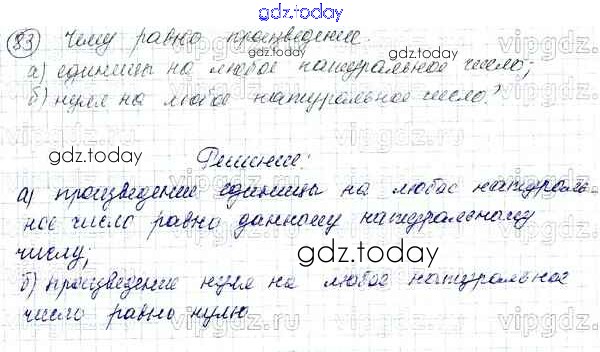 gdz.today
83 Чему равно произведение:
а) единицы на любое натуральное число;
б) нуля на любое натуральное число?
gdz.today
Решение:
а) произведение единицы на любое натураль-
ное число равно данному натуральному
числу;
gdz.today
б) произведение нуля на любое натуральное
число равно нулю
vipgdz.ru